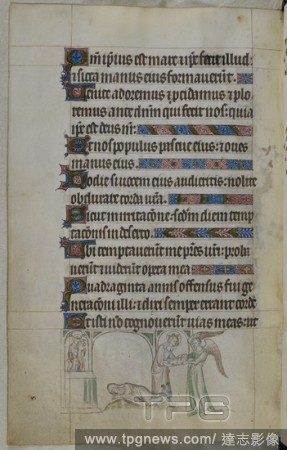 Qm ipius est mare et ipe fecit illud:
et sicca manus eius formaverunt.
Venite adoremus et pcidamus et plo
remus ante dnm qui fecit nos: quia
ipe est deus nr.
Et nos populus pascue eius: et oves
manus eius.
Hodie si vocem eius audieritis: nolite
obdurare corda vra.
Sicut in irritacone: scdm diem temp
taconis in deserto.
Ubi temptaverunt me pres vri: proba
verunt et viderunt opera mea
Quadraginta annis offensus fui ge
neraconi illi: et dixi semper errant corde
Et isti no cognoverunt vias meas: ut
TPG
www.tpgnews.com / 達志影像